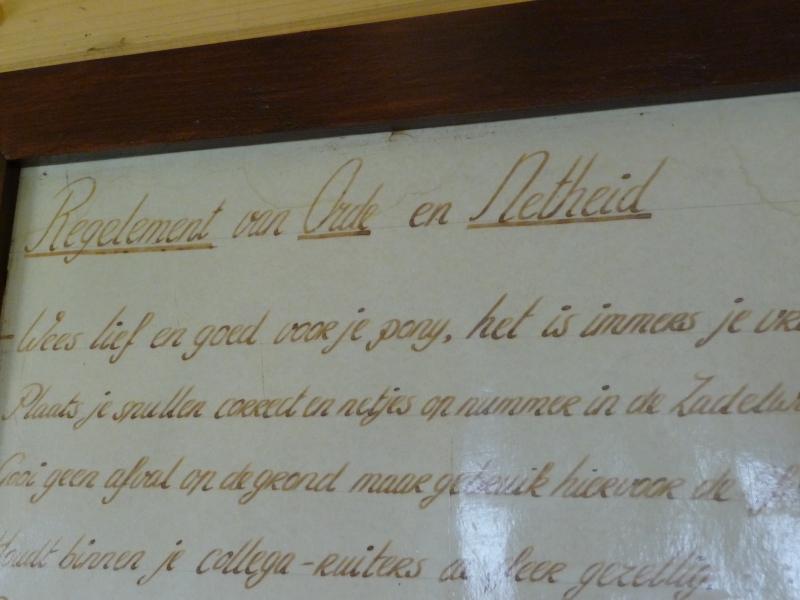 Regelement van Orde en Netheid
- Wees lief en goed voor je pony, het is immers je
Plaats je spullen correct en netjes op nummer in de
Gooi geen afval op de grond maar gebruik hiervoor de
Houdt binnen je collega-ruiters de sfeer gezellig.